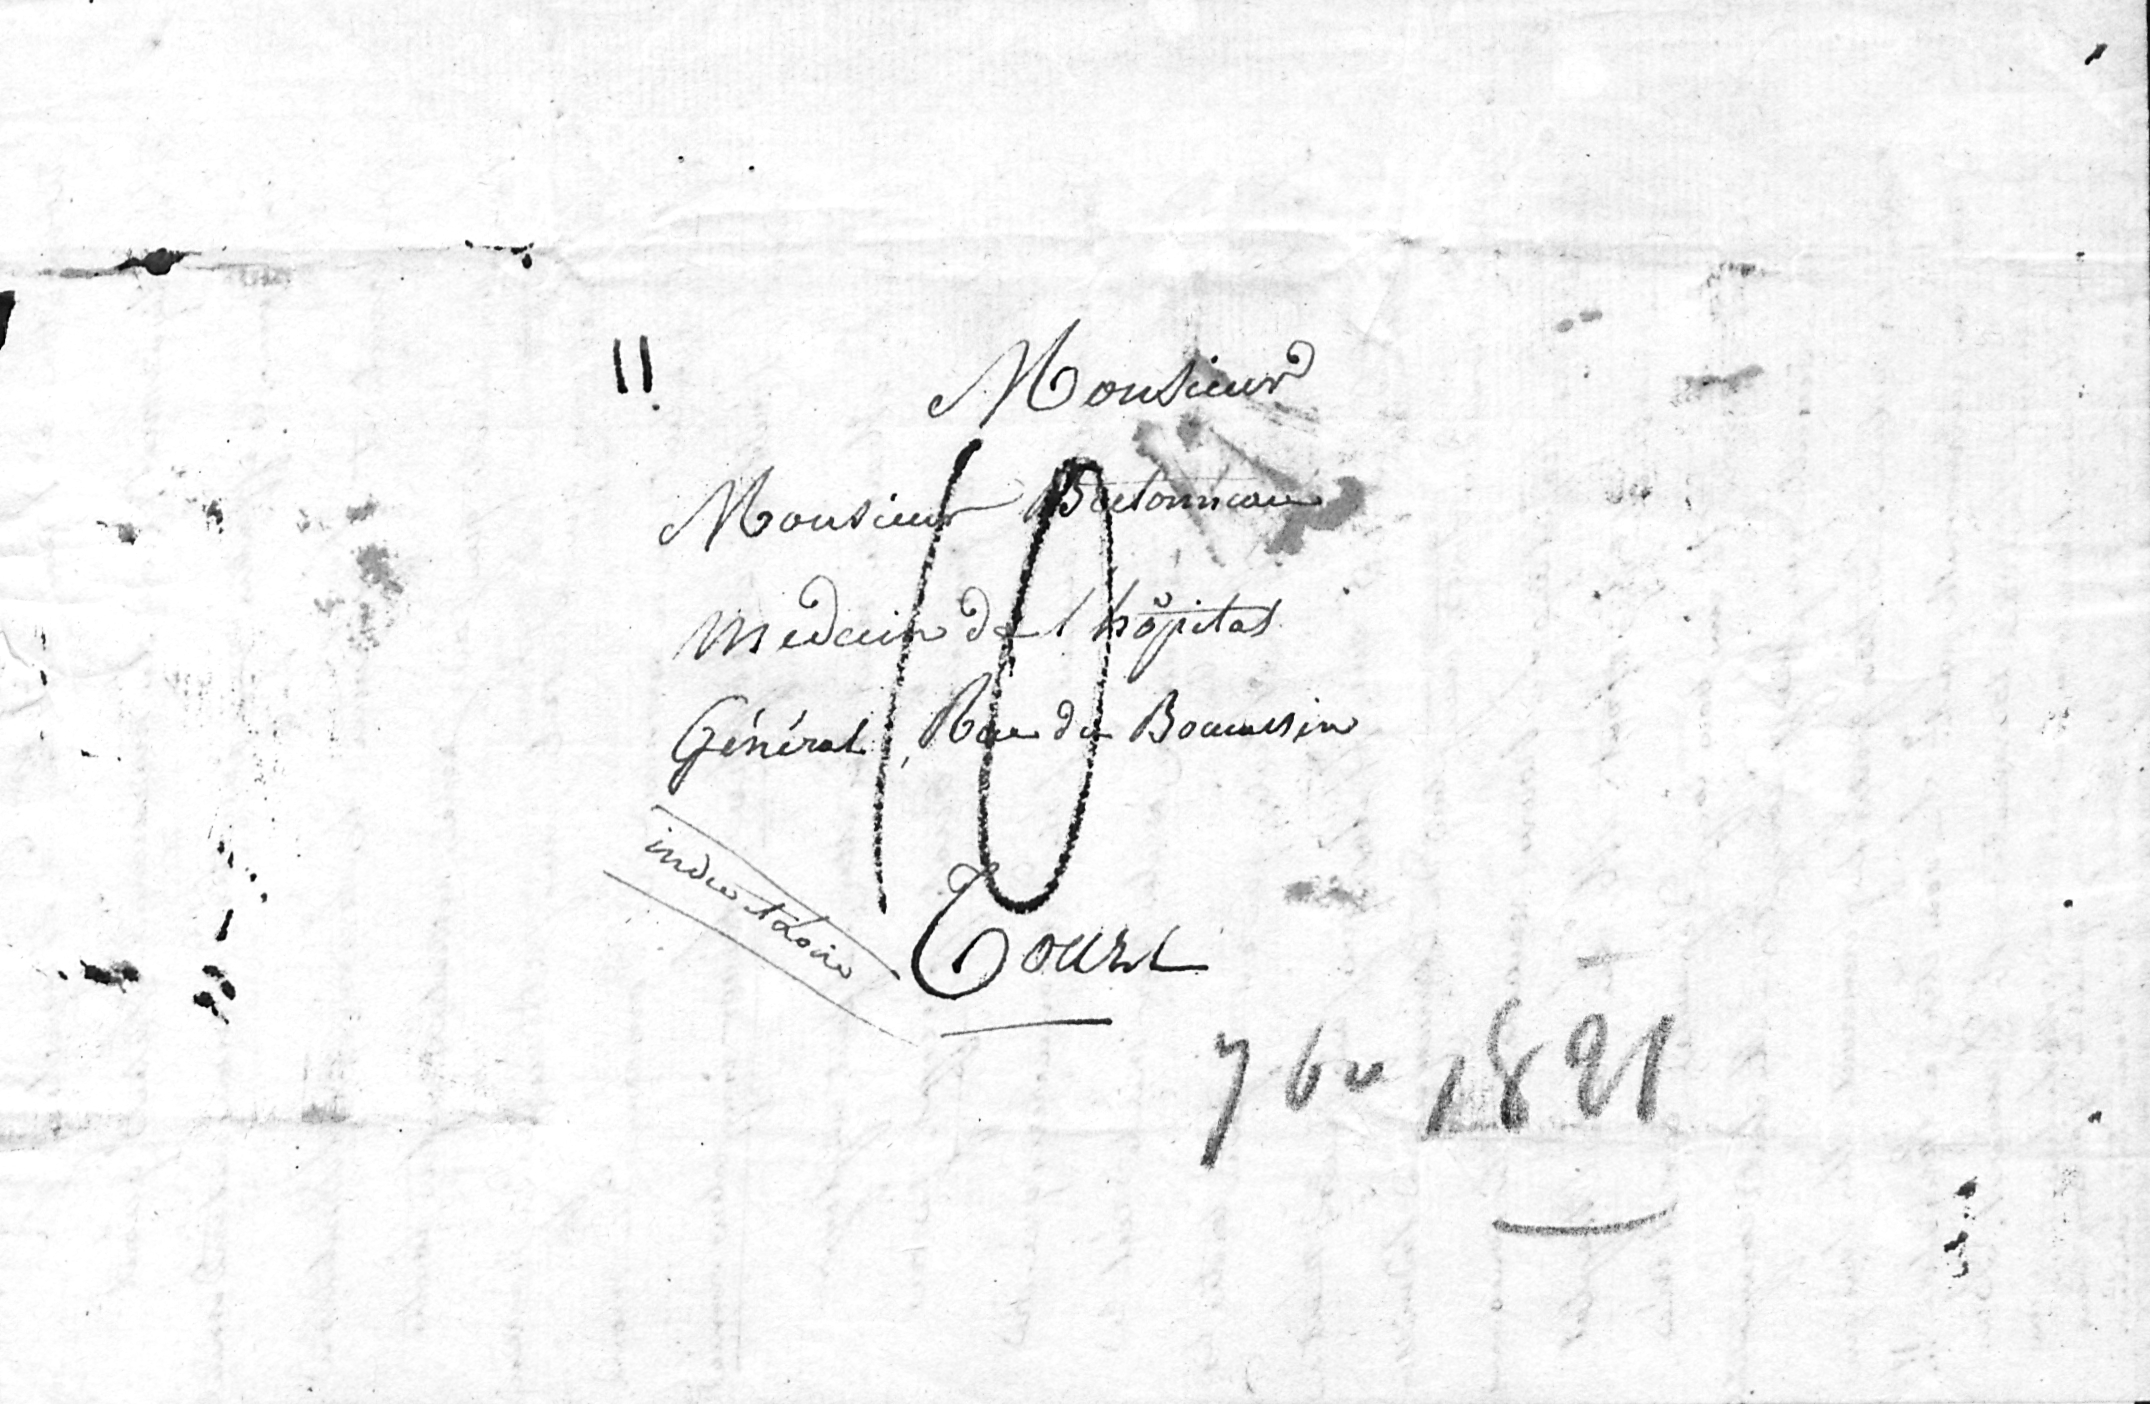 11
Monsieur
Monsieur Bretonneau
Medecin de l'hôpital
Général, Rue du
10
indre et Loire
Tours
7bre 1821